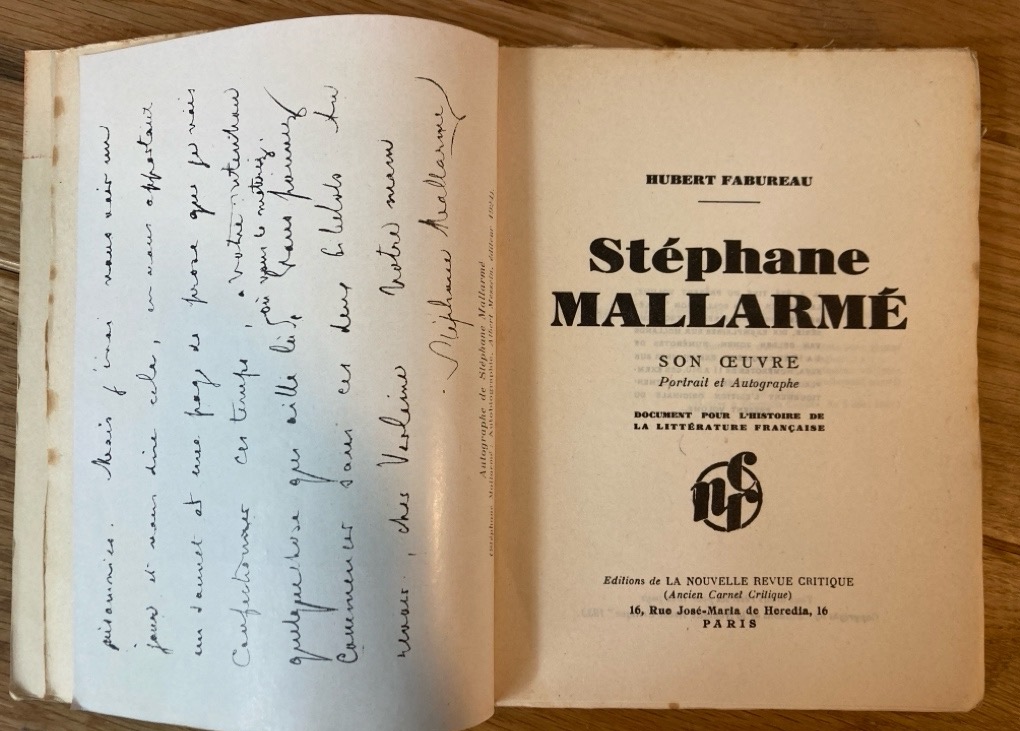 Mais j'irai vous voir un
jour et vous dire cela, en vous apportant
un sonnet et une page de prose que je vais
confectionner ces temps, à votre intention
quelque chose qui aille là où vous le mettrez. Vous pouvez
commencer sans ces deux bibelots Au
revoir, cher Verlaine Votre main
Stéphane Mallarmé
Autographe de Stéphane Mallarmé
(Stéphane Mallarmé : Autobiographie, Albert Messein, éditeur 1924).
HUBERT FABUREAU
Stéphane
MALLARMÉ
SON ŒUVRE
Portrait et Autographe
DOCUMENT POUR L'HISTOIRE DE
LA LITTÉRATURE FRANÇAISE
nrc
Editions de LA NOUVELLE REVUE CRITIQUE
(Ancien Carnet Critique)
16, Rue José-Maria de Heredia, 16
PARIS